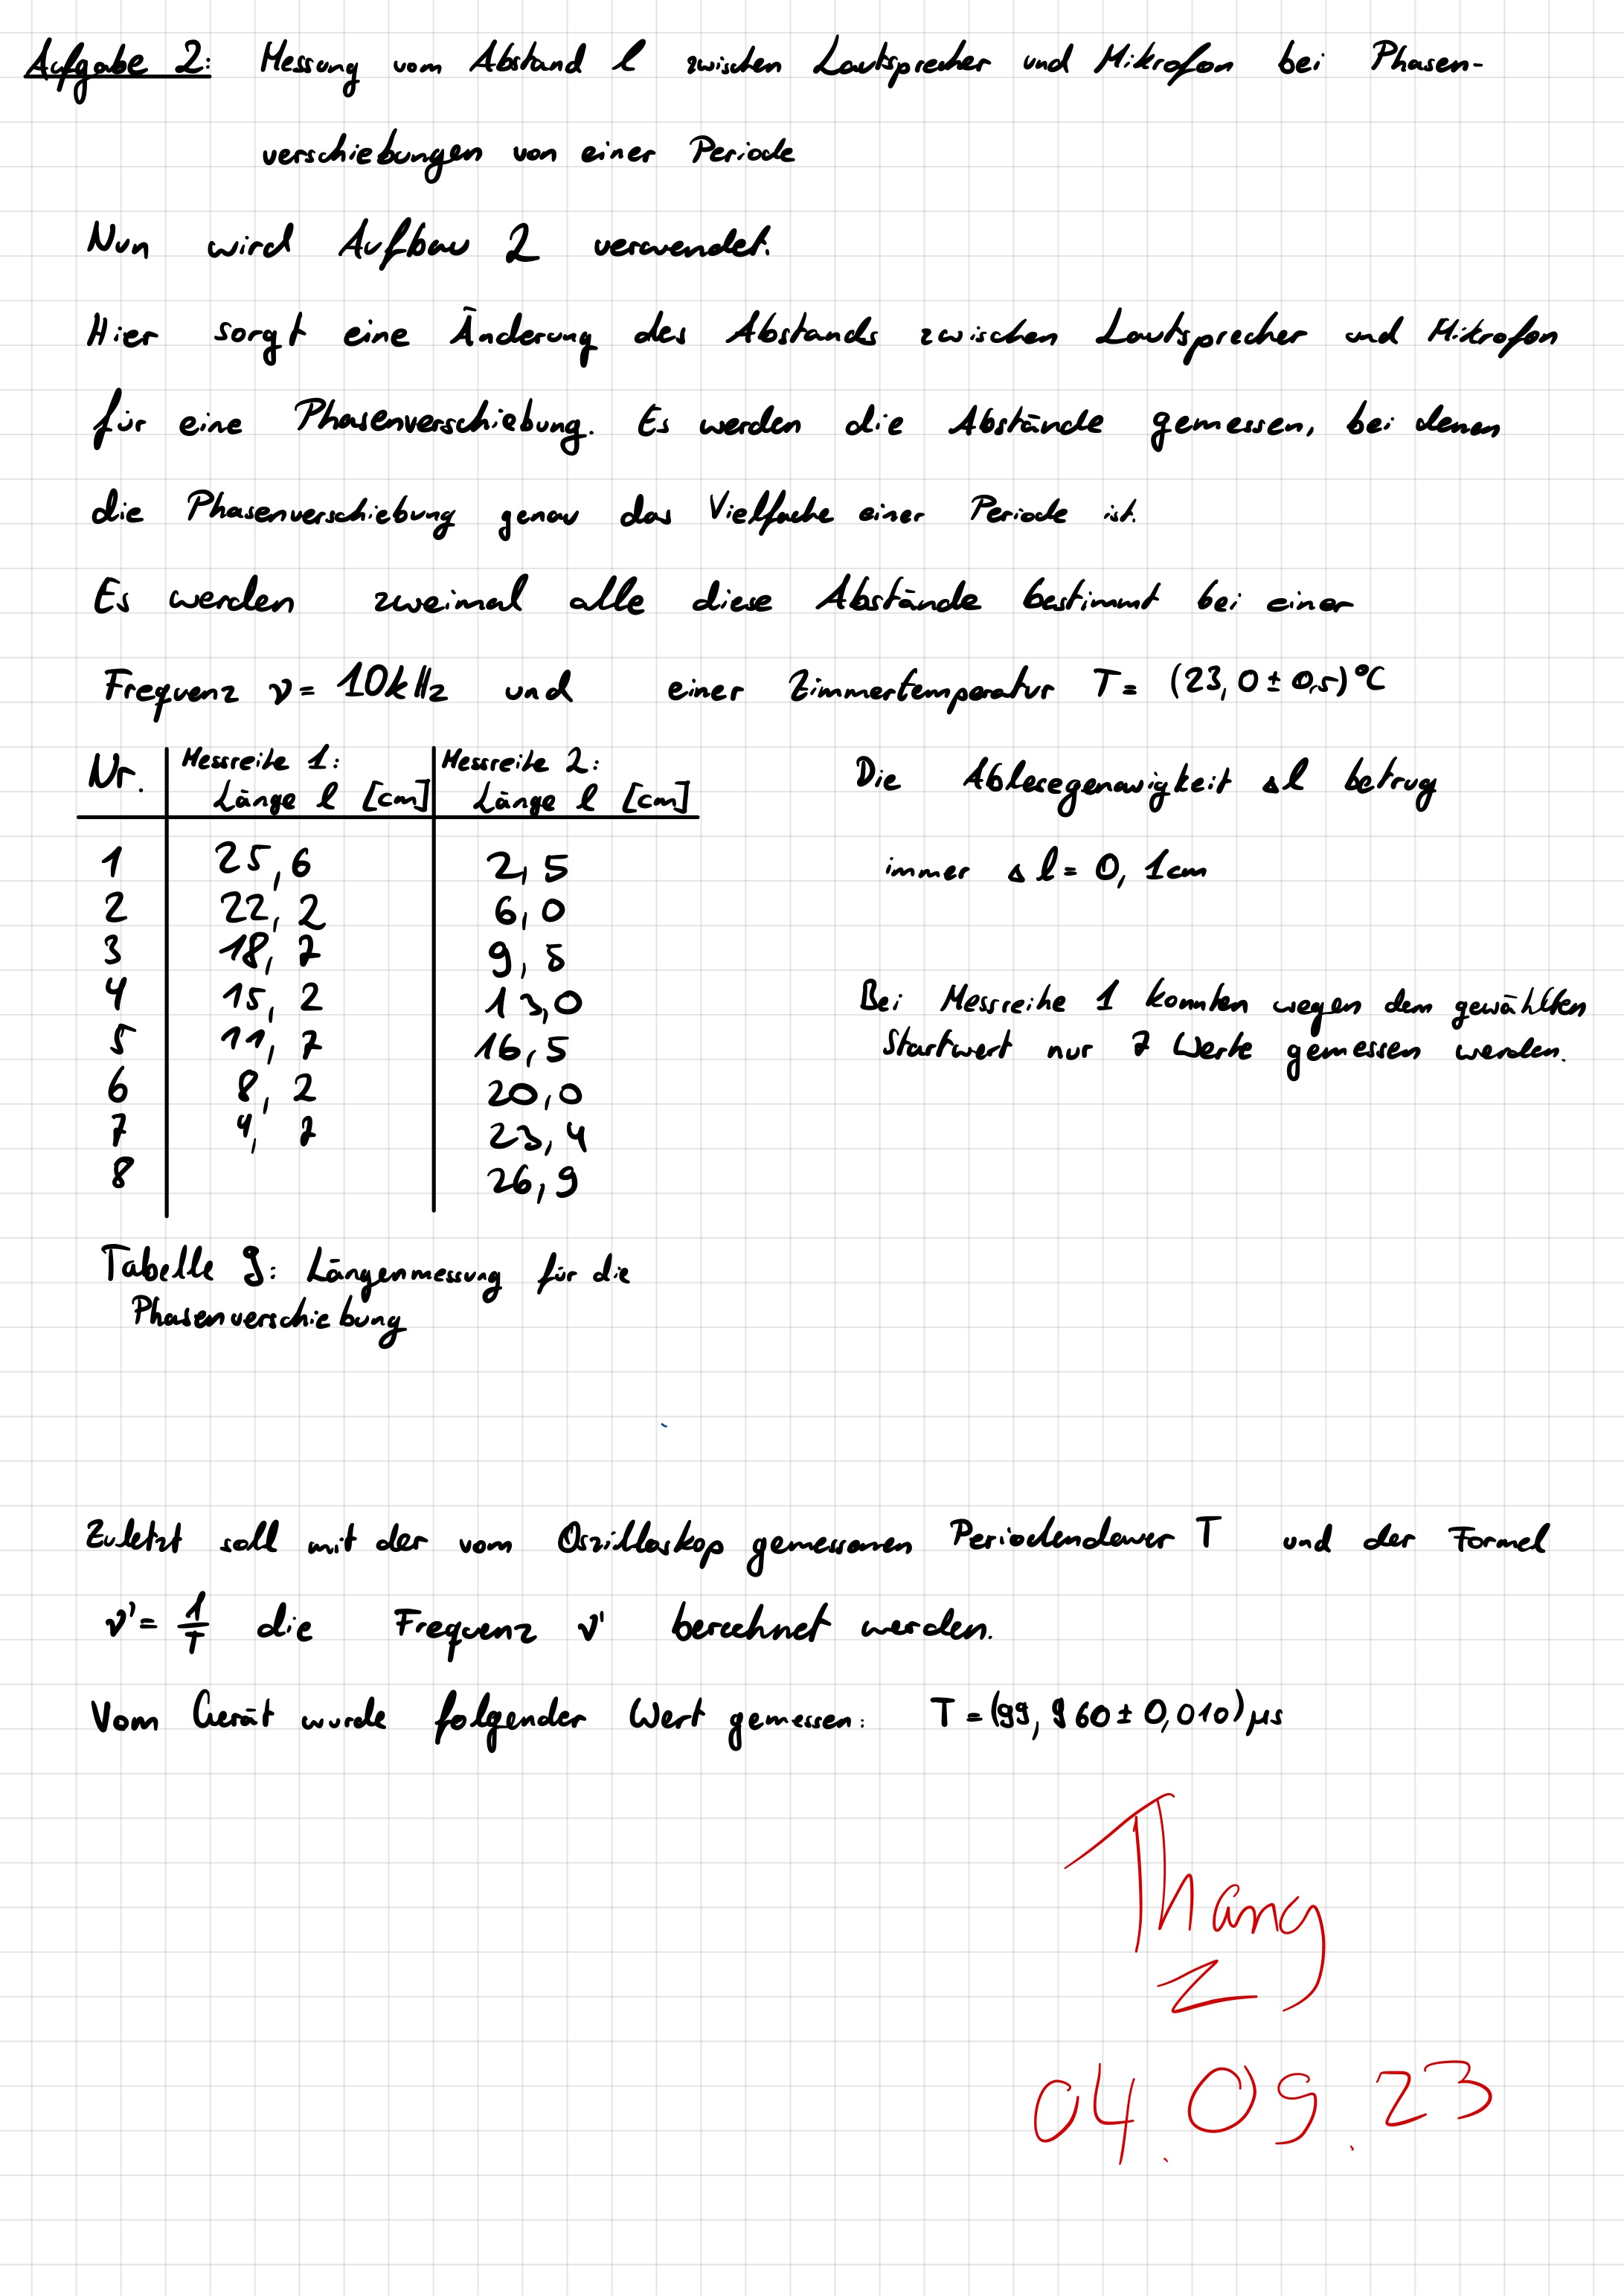 Aufgabe 2: Messung vom Abstand l zwischen Lautsprecher und Mikrofon bei Phasen-
verschiebungen von einer Periode
Nun wird Aufbau 2 verwendet.
Hier sorgt eine Änderung des Abstands zwischen Lautsprecher und Mikrofon
für eine Phasenverschiebung. Es werden die Abstände gemessen, bei denen
die Phasenverschiebung genau das Vielfache einer Periode ist.
Es werden zweimal alle diese Abstände bestimmt bei einer
Frequenz ν = 10kHz und einer Zimmertemperatur T = (23,0 ± 0,5)°C
Nr. Messreihe 1: Messreihe 2:
Länge l [cm] Länge l [cm]
1 25,6 2,5
2 22,2 6,0
3 18,7 9,5
4 15,2 13,0
5 11,7 16,5
6 8,2 20,0
7 4,7 23,4
8 26,9
Die Ablesegenauigkeit Δl betrug
immer Δl = 0,1cm
Bei Messreihe 1 konnten wegen dem gewählten
Startwert nur 7 Werte gemessen werden.
Tabelle 9: Längenmessung für die
Phasenverschiebung
Zuletzt soll mit der vom Oszilloskop gemessenen Periodendauer T und der Formel
ν' = 1/T die Frequenz ν' berechnet werden.
Vom Gerät wurde folgender Wert gemessen: T = (99,960 ± 0,010) μs
Thang
Z
04.09.23